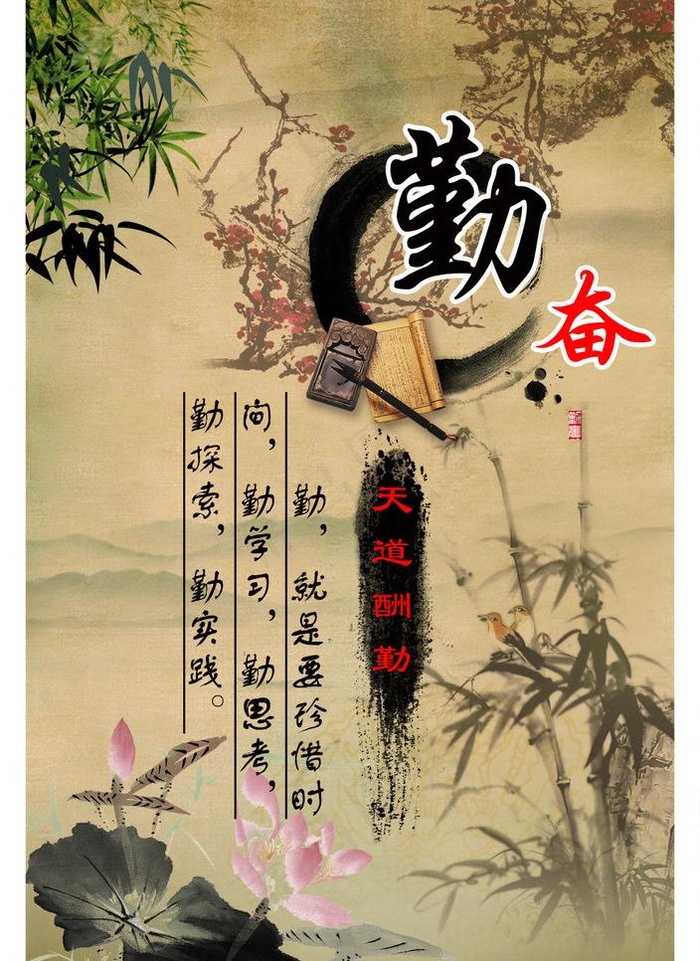 勤
奋
天道酬勤
勤，就是要珍惜时
间，勤学习，勤思考，
勤探索，勤实践。